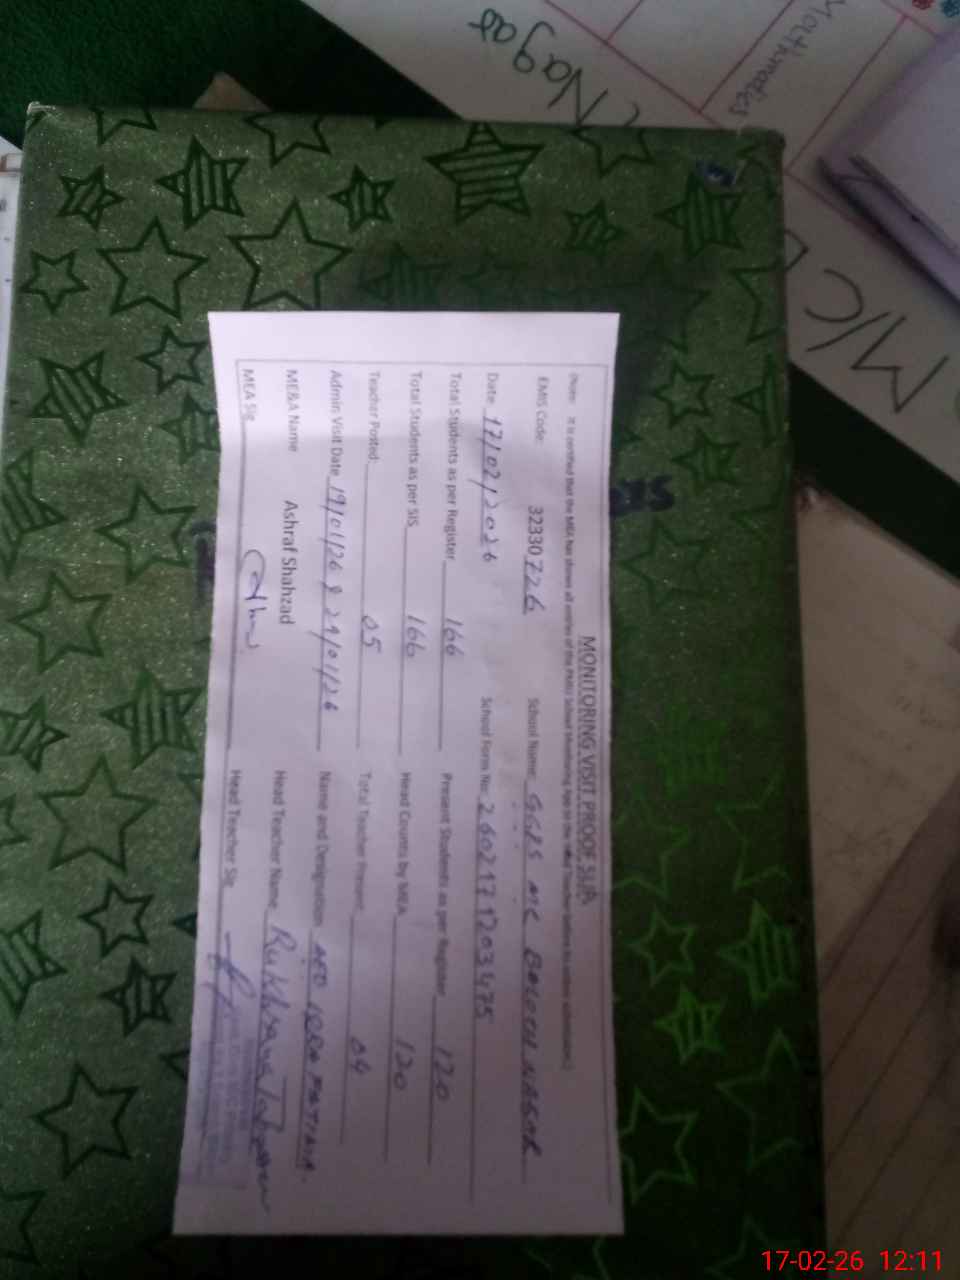 MONITORING VISIT PROOF SLIP
(Note: It is certified that the MEA has shown all entries of the PMIU School Monitoring App to the Head Teacher before its online submission.)
EMIS Code: 32330726 School Name: GGPS MC BALOCH NAGAR
Date 17/02/2026 School Form No: 2602171203475
Total Students as per Register 166 Present Students as per Register 120
Total Students as per SIS 166 Head Counts by MEA 120
Teacher Posted: 05 Total Teacher Present 04
Admin Visit Date 19/01/26 & 29/01/26 Name and Designation AEO IQRA FATIMA
ME&A Name Ashraf Shahzad Head Teacher Name Rukhsana
MEA Sig Head Teacher Sig
Nagar
Mathematics
M/C
17-02-26 12:11